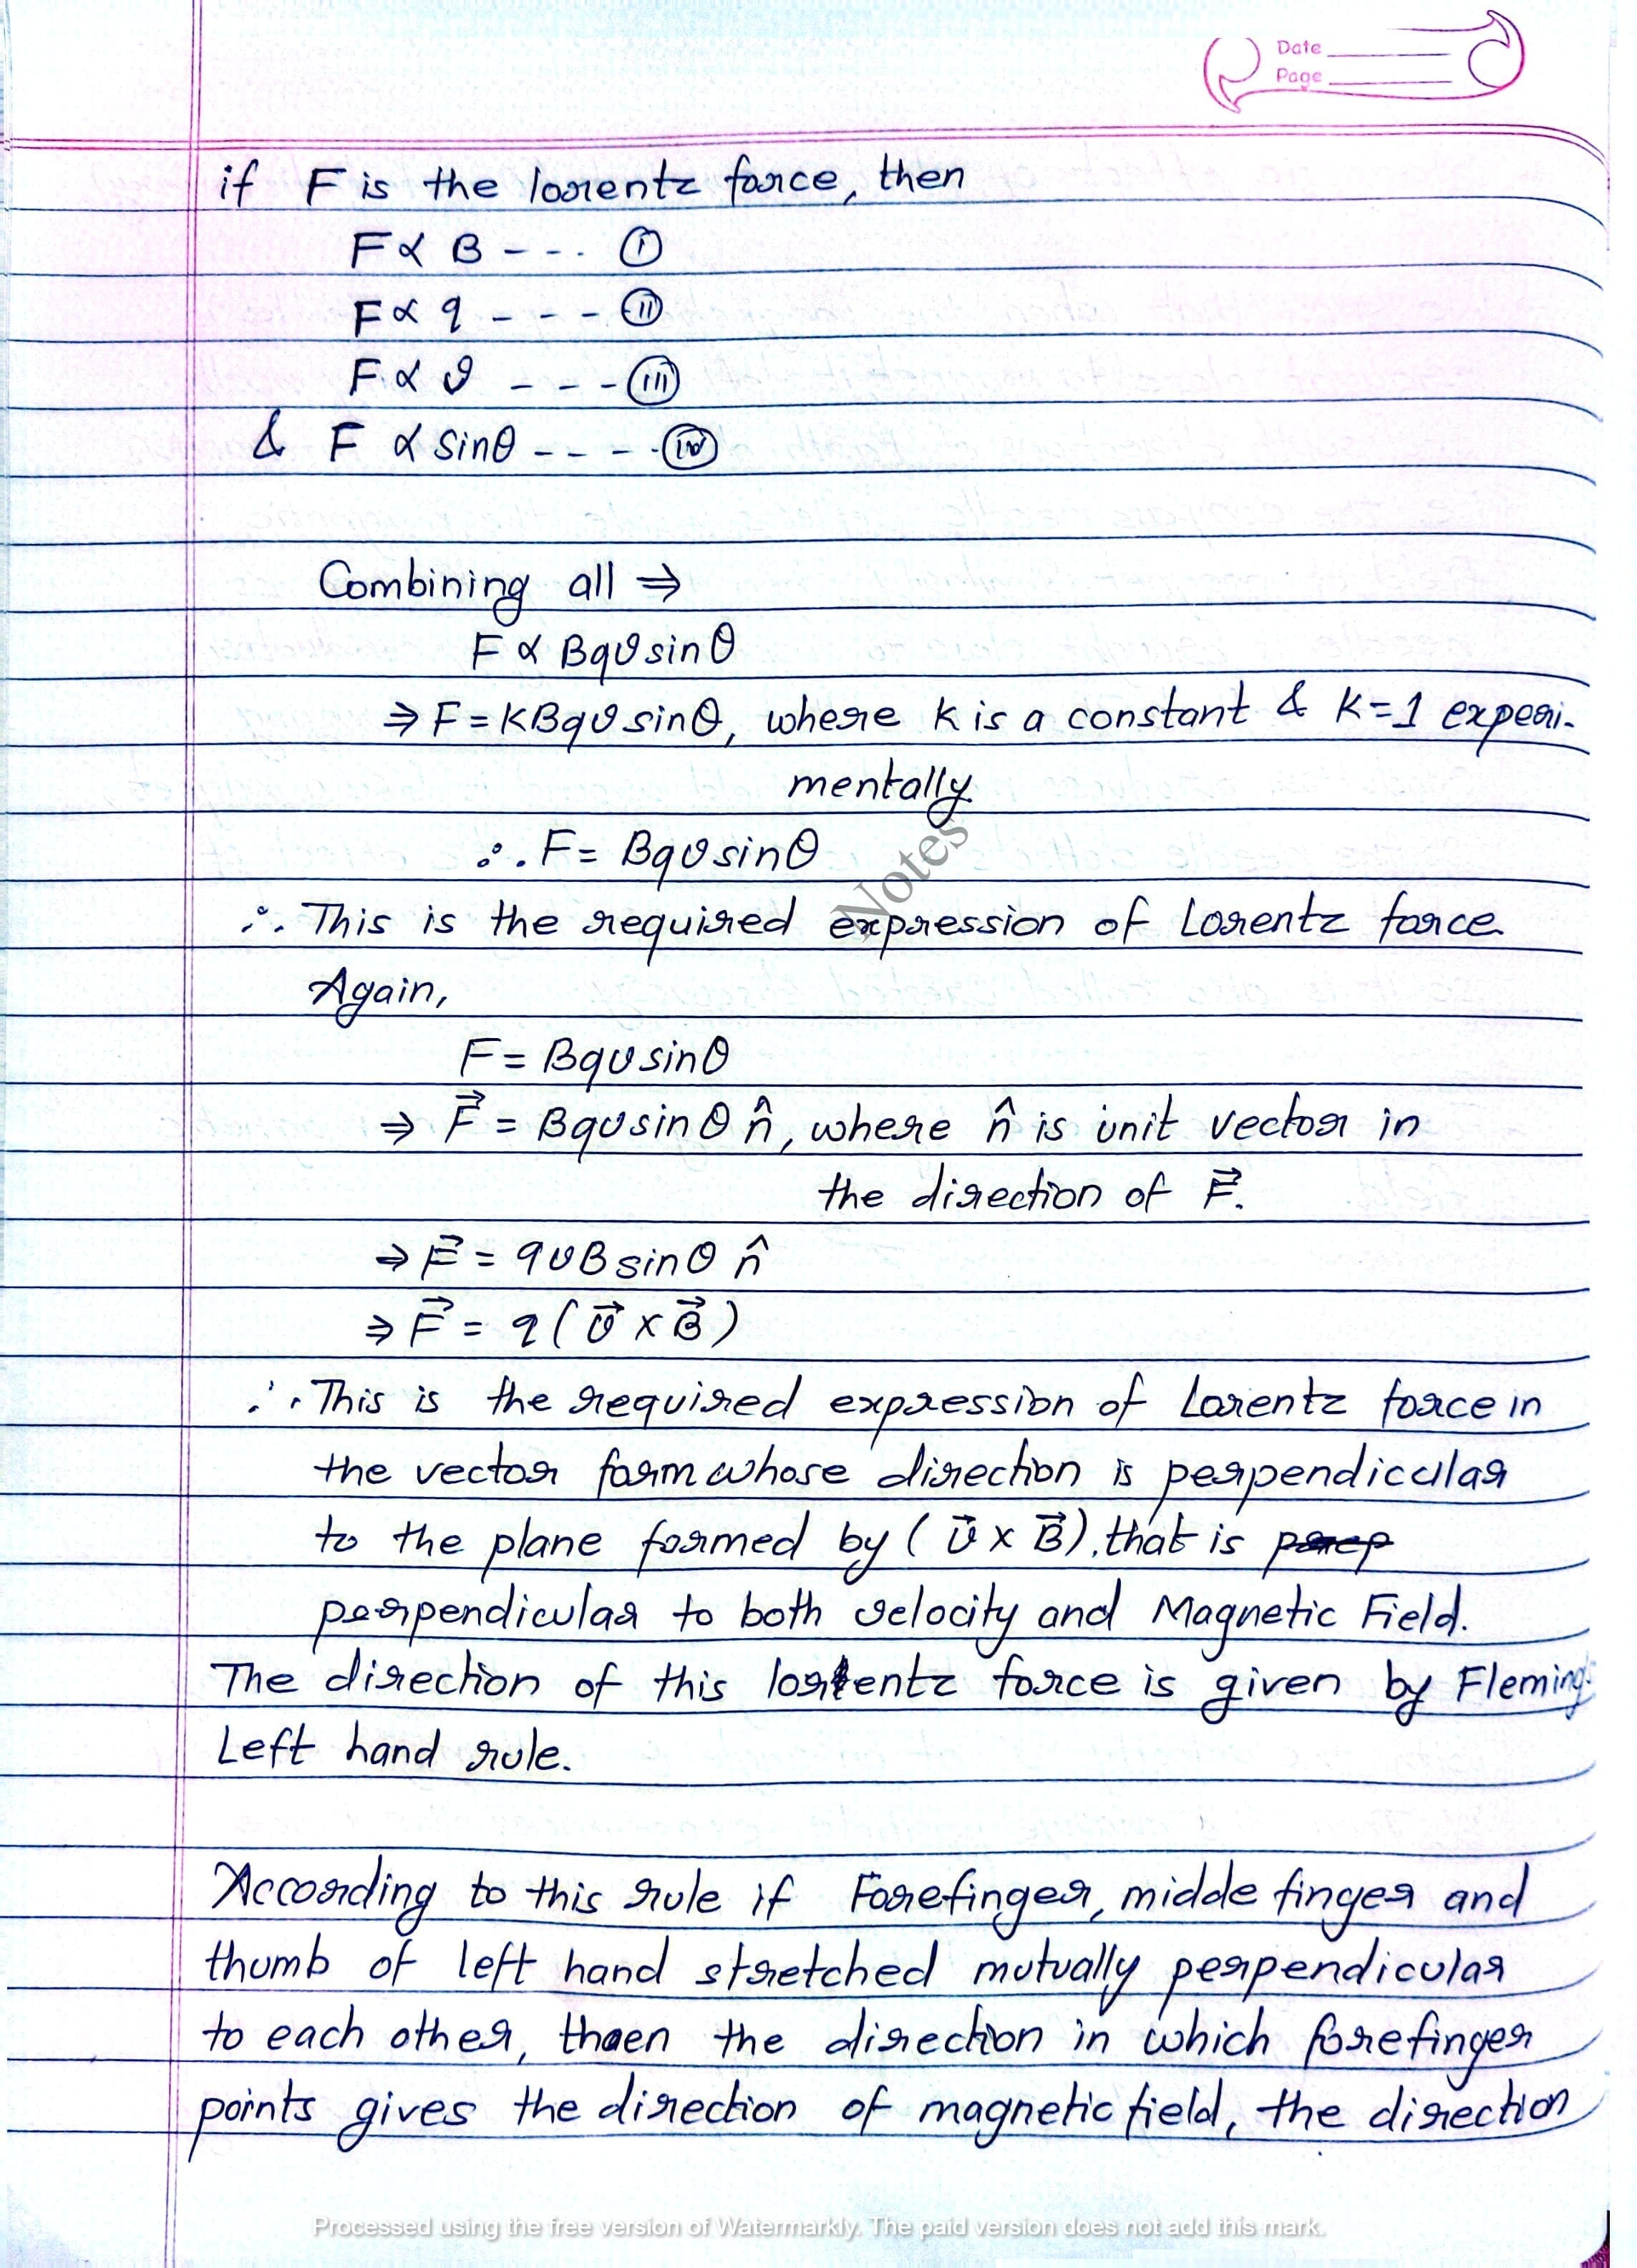 Date
Page
if F is the lorentz force, then
F ∝ B --- (i)
F ∝ q --- (ii)
F ∝ v --- (iii)
& F ∝ sinθ ---- (iv)
Combining all ⇒
F ∝ Bqv sinθ
⇒ F = KBqv sinθ, where K is a constant & K=1 experi-
mentally
∴ F = Bqv sinθ
Notes
∴ This is the required expression of Lorentz force
Again,
F = Bqv sinθ
⇒ F⃗ = Bqv sinθ n̂, where n̂ is unit vector in
the direction of F⃗.
⇒ F⃗ = qvB sinθ n̂
⇒ F⃗ = q(v⃗ × B⃗)
∴ This is the required expression of Lorentz force in
the vector form whose direction is perpendicular
to the plane formed by (v⃗ × B⃗), that is
perpendicular to both velocity and Magnetic Field.
The direction of this lorentz force is given by Fleming's
Left hand rule.
According to this rule if Forefinger, midde finger and
thumb of left hand stretched mutually perpendicular
to each other, then the direction in which forefinger
points gives the direction of magnetic field, the direction
Processed using the free version of Watermarkly. The paid version does not add this mark.